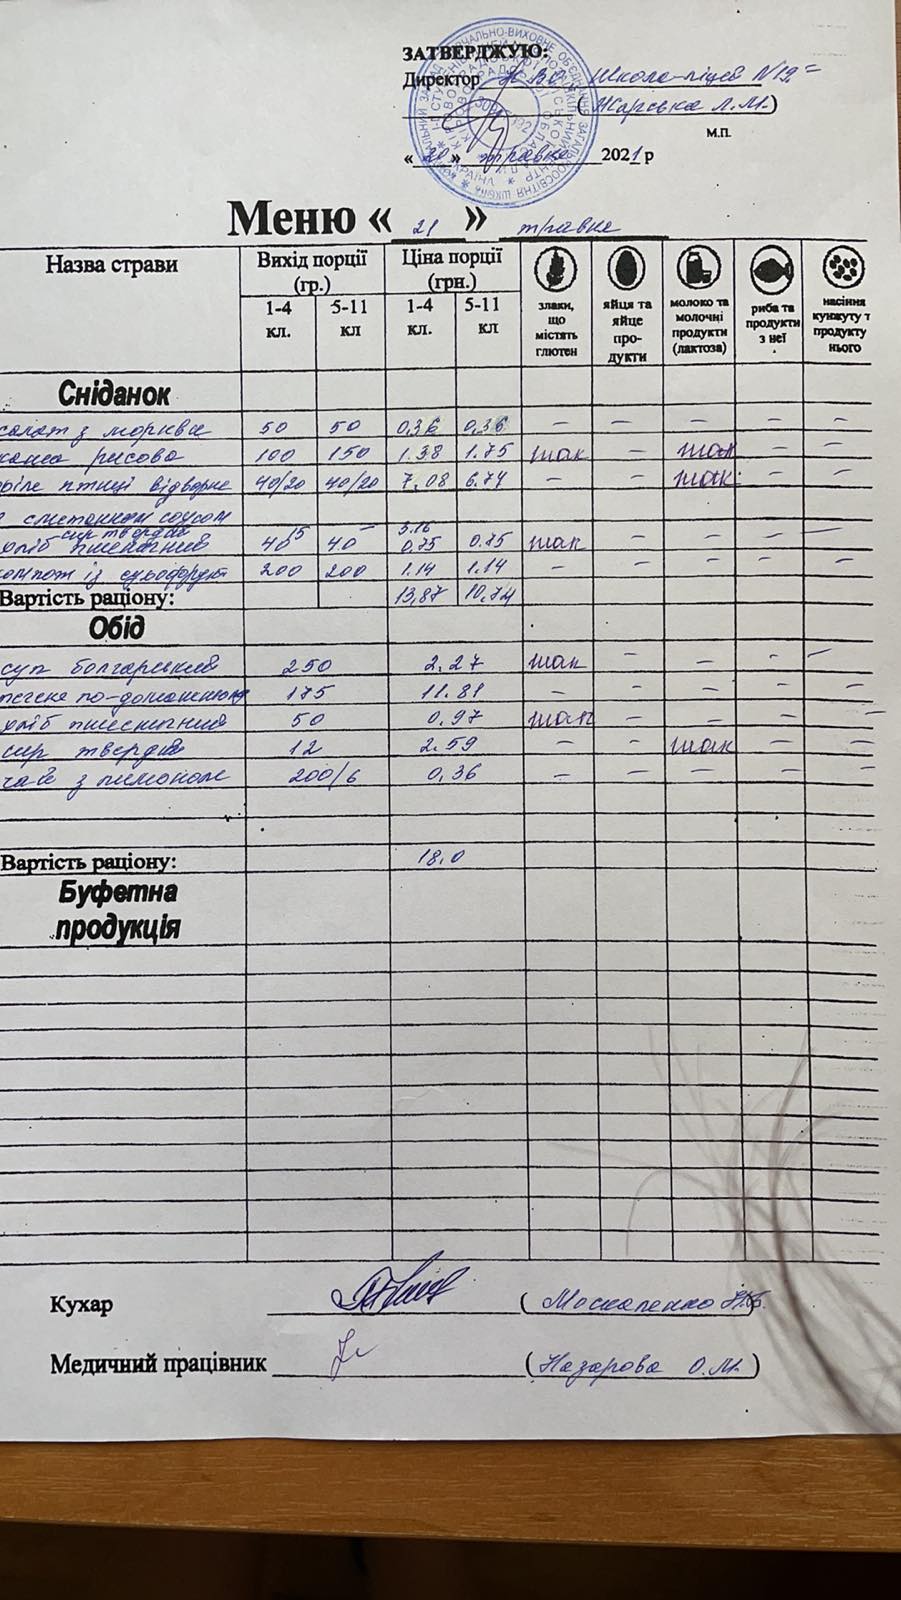 ЗАТВЕРДЖУЮ:
Директор НВО Школа-ліцей N19=
( Жарська Л.М.)
М.П.
« 20 » травня 2021 р
Меню « 21 » травня
Назва страви Вихід порції (гр.) Ціна порції (грн.) злаки, що містять глютен яйця та яйце про- дукти молоко та молочні продукти (лактоза) риба та продукти з неї насіння кунжуту т продукту нього
1-4 кл. 5-11 кл 1-4 кл. 5-11 кл
Сніданок
салат з моркви 50 50 0,36 0,36 – – – – –
каша рисова 100 150 1.38 1.75 так – так – –
філе птиці відварне 40/20 40/20 7,08 6.74 – – так – –
сметанном соусом
сир твердий 15 – 3.16
хліб пшеничний 40 40 0,75 0.75 так – – – –
компот із сухофрукт 200 200 1.14 1.14 – – – – –
Вартість раціону: 13,87 10,74
Обід
суп болгарський 250 2.27 так – – – –
печеня по-домашньому 175 11.81 – – – – –
хліб пшеничний 50 0,97 так – – – –
сир твердий 12 2.59 – – так – –
чай з лимоном 200/6 0,36 – – – – –
Вартість раціону: 18.0
Буфетна
продукція
Кухар ( Москаленко )
Медичний працівник ( Назарова О.М. )